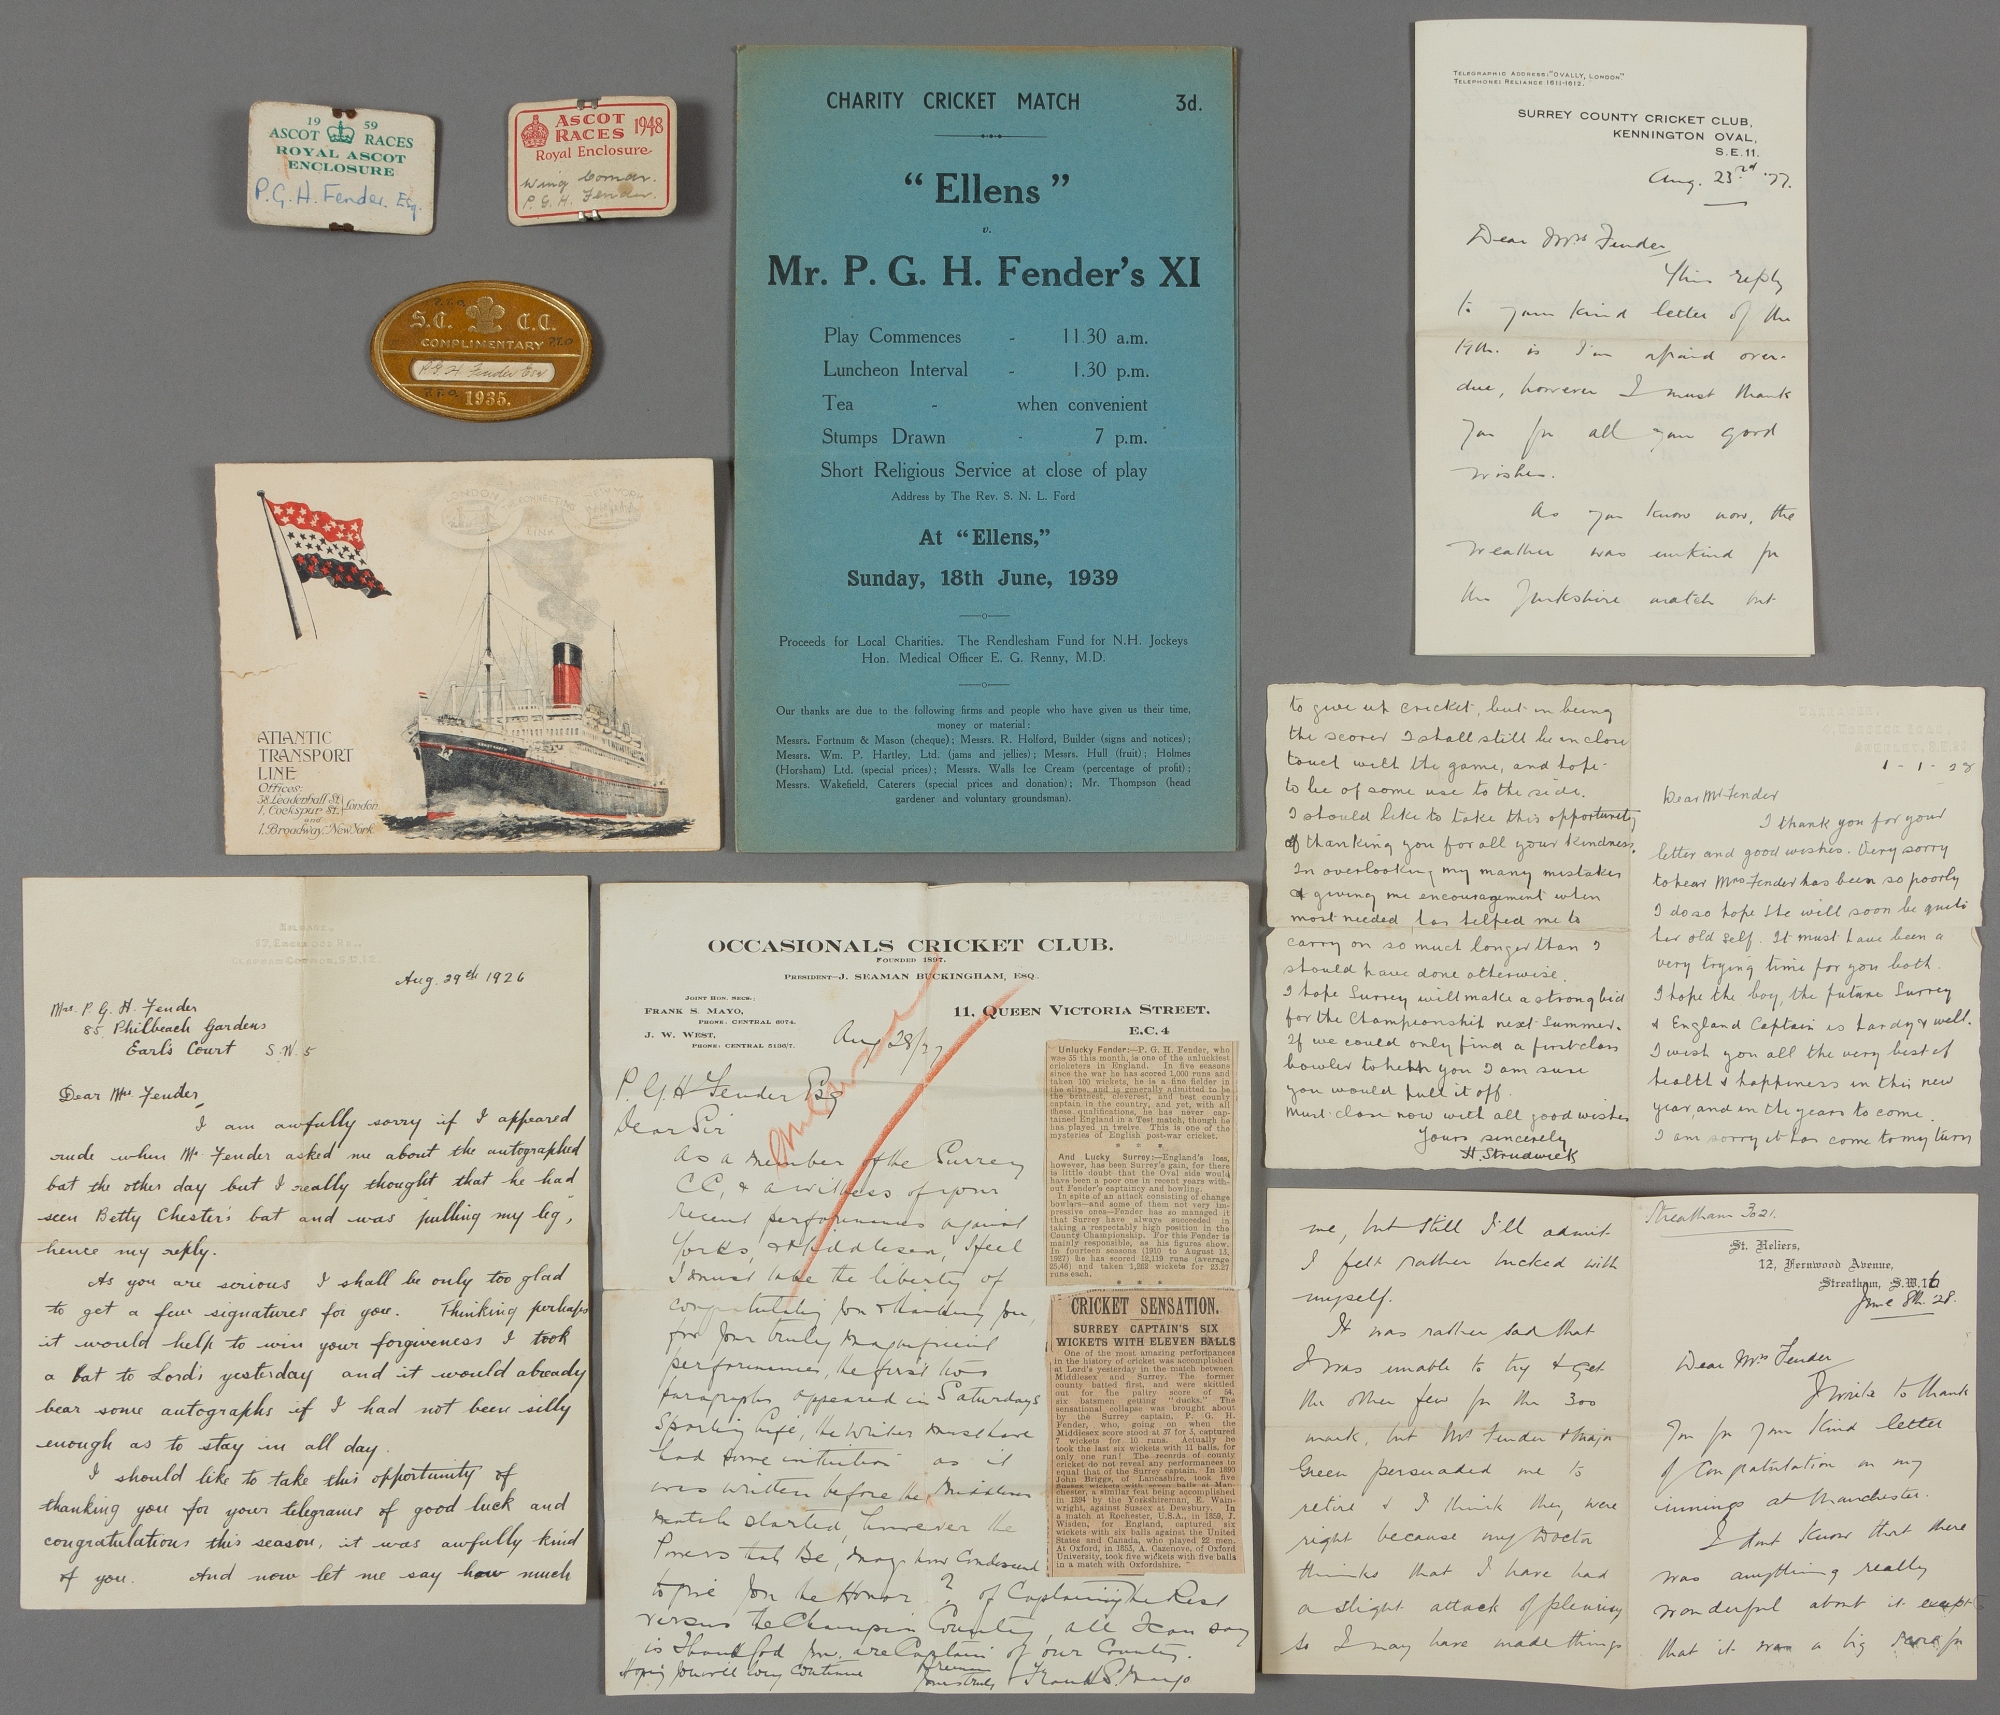 19 59
ASCOT RACES
ROYAL ASCOT
ENCLOSURE
P.G.H. Fender. Esq.
ASCOT
RACES 1948
Royal Enclosure
Wing Comdr.
P. G. H. Fender.
P.T.O.
S.C. C.C.
COMPLIMENTARY P.T.O
P.G.H Fender Esq
P.T.O. 1935.
LONDON CONNECTING NEW YORK
LINK
ATLANTIC
TRANSPORT
LINE
Offices:
38 Leadenhall St.
1, Cockspur St. London
and
1. Broadway. New York.
CHARITY CRICKET MATCH 3d.
"Ellens"
v.
Mr. P. G. H. Fender's XI
Play Commences - 11.30 a.m.
Luncheon Interval - 1.30 p.m.
Tea - when convenient
Stumps Drawn - 7 p.m.
Short Religious Service at close of play
Address by The Rev. S. N. L. Ford
At "Ellens,"
Sunday, 18th June, 1939
Proceeds for Local Charities. The Rendlesham Fund for N.H. Jockeys
Hon. Medical Officer E. G. Renny, M.D.
Our thanks are due to the following firms and people who have given us their time,
money or material:
Messrs. Fortnum & Mason (cheque); Messrs. R. Holford, Builder (signs and notices);
Messrs. Wm. P. Hartley, Ltd. (jams and jellies); Messrs. Hull (fruit); Holmes
(Horsham) Ltd. (special prices); Messrs. Walls Ice Cream (percentage of profit);
Messrs. Wakefield, Caterers (special prices and donation); Mr. Thompson (head
gardener and voluntary groundsman).
TELEGRAPHIC ADDRESS: "OVALLY, LONDON"
TELEPHONE: RELIANCE 1611-1612.
SURREY COUNTY CRICKET CLUB,
KENNINGTON OVAL,
S.E.11.
Aug. 23rd '27.
Dear Mrs Fender,
This reply
to your kind letter of the
17th. is I'm afraid over-
due, however I must thank
you for all your good
wishes.
As you know now, the
weather was unkind for
the Yorkshire match but
to give up cricket, but in being
the scorer I shall still be in close
touch with the game, and hope
to be of some use to the side.
I should like to take this opportunity
of thanking you for all your kindness.
In overlooking my many mistakes
& giving me encouragement when
most needed, has helped me to
carry on so much longer than I
should have done otherwise.
I hope Surrey will make a strong bid
for the Championship next Summer.
If we could only find a first class
bowler to help you I am sure
you would pull it off.
Must close now with all good wishes
Yours sincerely
H. Strudwick
1-1-28
Dear Mr Fender
I thank you for your
letter and good wishes. Very sorry
to hear Mrs Fender has been so poorly
I do so hope she will soon be quite
her old self. It must have been a
very trying time for you both.
I hope the boy, the future Surrey
& England Captain is hardy & well.
I wish you all the very best of
health & happiness in this new
year, and in the years to come.
I am sorry it has come to my turn
Aug. 29th 1926
Mrs. P. G. H. Fender
85, Philbeach Gardens
Earl's Court S.W.5
Dear Mrs. Fender,
I am awfully sorry if I appeared
rude when Mr. Fender asked me about the autographed
bat the other day but I really thought that he had
seen Betty Chester's bat and was 'pulling my leg',
hence my reply.
As you are serious I shall be only too glad
to get a few signatures for you. Thinking perhaps
it would help to win your forgiveness I took
a bat to Lord's yesterday and it would already
bear some autographs if I had not been silly
enough as to stay in all day.
I should like to take this opportunity of
thanking you for your telegrams of good luck and
congratulations this season, it was awfully kind
of you. And now let me say how much
OCCASIONALS CRICKET CLUB.
FOUNDED 1897.
PRESIDENT—J. SEAMAN BUCKINGHAM, ESQ.
JOINT HON. SECS.:
FRANK S. MAYO,
PHONE: CENTRAL 6074.
J. W. WEST,
PHONE: CENTRAL 5136/7.
11, QUEEN VICTORIA STREET,
E.C.4
Aug 28/27
P. G. H Fender Esq
Dear Sir
As a member of the Surrey
CC, & a witness of your
recent performances against
Yorks, & Middlesex, I feel
I must take the liberty of
congratulating you & thanking you,
for your truly magnificent
performances, the first two
paragraphs appeared in Saturdays
Sporting Life, the writer must have
had some intuition as it
was written before the Middlesex
match started, however the
Powers that Be, may now Condescend
to give you the Honor ? of Captaining the Rest
versus the Champion County, all I can say
is Thank God you are Captain of our County.
Hoping you will long continue
Yours truly Frank S. Mayo
Unlucky Fender:—P. G. H. Fender, who
was 35 this month, is one of the unluckiest
cricketers in England. In five seasons
since the war he has scored 1,000 runs and
taken 100 wickets, he is a fine fielder in
the slips, and is generally admitted to be
the brainiest, cleverest, and best county
captain in the country, and yet, with all
these qualifications, he has never cap-
tained England in a Test match, though he
has played in twelve. This is one of the
mysteries of English post-war cricket.
* * *
And Lucky Surrey:—England's loss,
however, has been Surrey's gain, for there
is little doubt that the Oval side would
have been a poor one in recent years with-
out Fender's captaincy and bowling.
In spite of an attack consisting of change
bowlers—and some of them not very im-
pressive ones—Fender has so managed it
that Surrey have always succeeded in
taking a respectably high position in the
County Championship. For this Fender is
mainly responsible, as his figures show.
In fourteen seasons (1910 to August 13,
1927) he has scored 12,119 runs (average
25.46) and taken 1,262 wickets for 23.27
runs each.
* * *
CRICKET SENSATION.
SURREY CAPTAIN'S SIX
WICKETS WITH ELEVEN BALLS
One of the most amazing performances
in the history of cricket was accomplished
at Lord's yesterday in the match between
Middlesex and Surrey. The former
county batted first, and were skittled
out for the paltry score of 54,
six batsmen getting "ducks." The
sensational collapse was brought about
by the Surrey captain, P. G. H.
Fender, who, going on when the
Middlesex score stood at 37 for 3, captured
7 wickets for 10 runs. Actually he
took the last six wickets with 11 balls, for
only one run! The records of county
cricket do not reveal any performances to
equal that of the Surrey captain. In 1890
John Briggs, of Lancashire, took five
Sussex wickets with seven balls at Man-
chester, a similar feat being accomplished
in 1894 by the Yorkshireman, E. Wain-
wright, against Sussex at Dewsbury. In
a match at Rochester, U.S.A., in 1859, J.
Wisden, for England, captured six
wickets with six balls against the United
States and Canada, who played 22 men.
At Oxford, in 1853, A. Cazenove, of Oxford
University, took five wickets with five balls
in a match with Oxfordshire.
me, but still I'll admit
I felt rather bucked with
myself.
It was rather sad that
I was unable to try & get
the other few for the 300
mark, but Mr Fender & Major
Green persuaded me to
retire & I think they were
right because my Doctor
thinks that I have had
a slight attack of pleurisy
so I may have made things
Streatham 3021.
St. Heliers,
12, Fernwood Avenue,
Streatham, S.W.16
June 8th. 28.
Dear Mrs Fender
I write to thank
you for your kind letter
of congratulation on my
innings at Manchester.
I dont know that there
was anything really
wonderful about it except
that it was a big score for